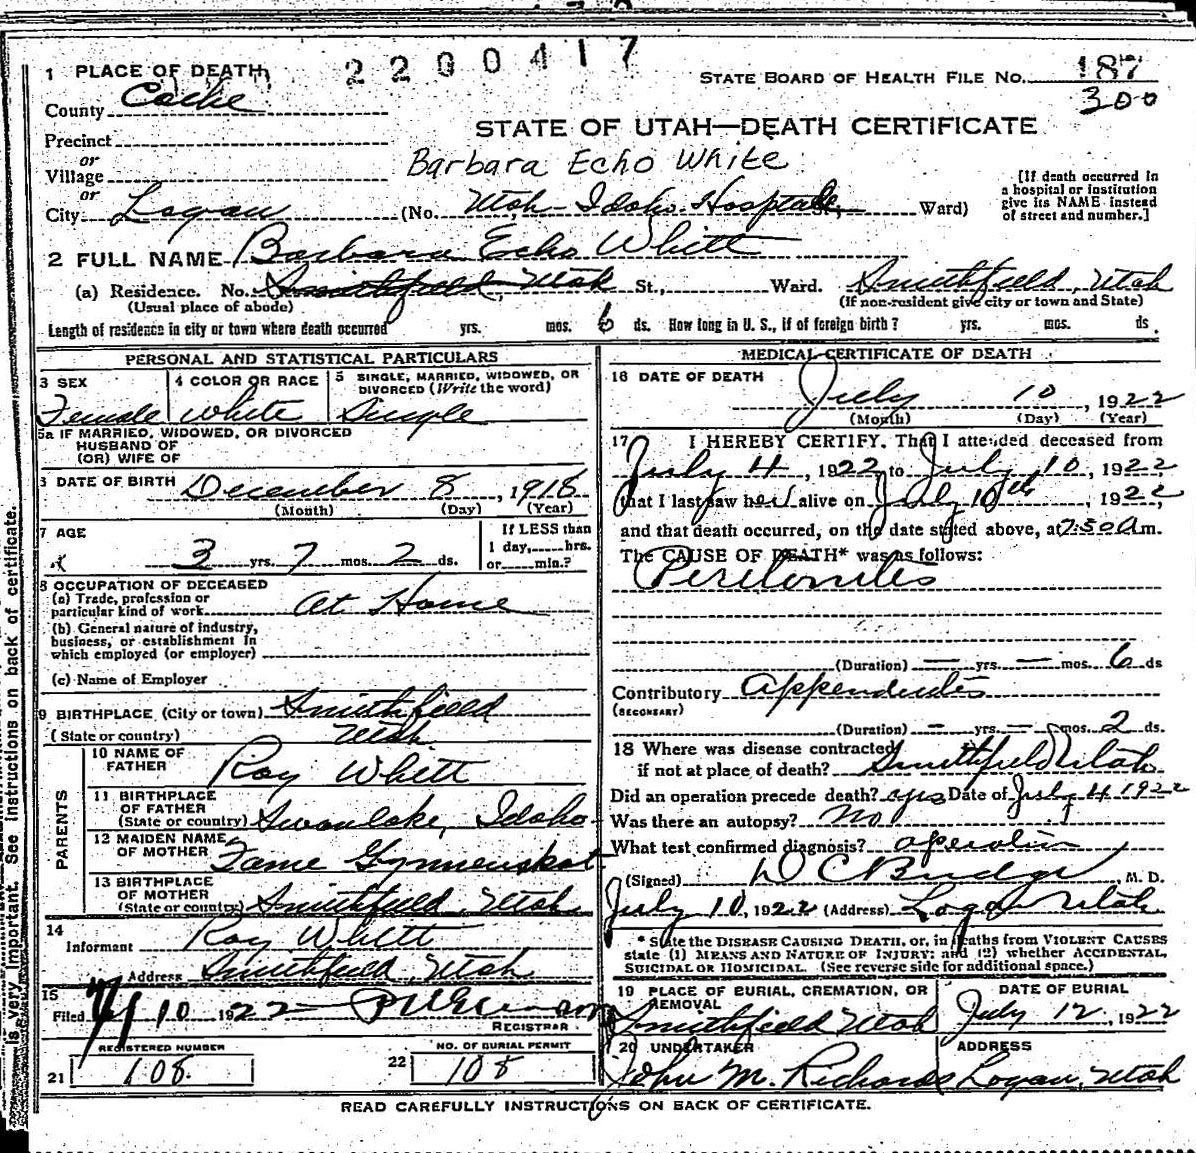 2200417
1 PLACE OF DEATH
STATE BOARD OF HEALTH FILE No. 187
300
County Cache
STATE OF UTAH—DEATH CERTIFICATE
Precinct
or
Village
Barbara Echo White
[If death occurred in a hospital or institution give its NAME instead of street and number.]
or
City Logan (No. Utah-Idaho Hospital St., Ward)
2 FULL NAME Barbara Echo Whitt
(a) Residence. No. Smithfield, Utah St., Ward. Smithfield, Utah
(Usual place of abode) (If non-resident give city or town and State)
Length of residence in city or town where death occurred yrs. mos. 6 ds. How long in U. S., if of foreign birth? yrs. mos. ds.
PERSONAL AND STATISTICAL PARTICULARS
3 SEX 4 COLOR OR RACE 5 SINGLE, MARRIED, WIDOWED, OR DIVORCED (Write the word)
Female White Single
5a IF MARRIED, WIDOWED, OR DIVORCED
HUSBAND OF
(OR) WIFE OF
DATE OF BIRTH December 8, 1918
(Month) (Day) (Year)
7 AGE If LESS than
3 yrs. 7 mos. 2 ds. 1 day, hrs.
or min.?
8 OCCUPATION OF DECEASED
(a) Trade, profession or particular kind of work At Home
(b) General nature of industry,
business, or establishment in
which employed (or employer)
(c) Name of Employer
9 BIRTHPLACE (City or town) Smithfield
(State or country) Utah
PARENTS
10 NAME OF FATHER Roy Whitt
11 BIRTHPLACE OF FATHER
(State or country) Swanlake, Idaho
12 MAIDEN NAME OF MOTHER
13 BIRTHPLACE OF MOTHER
(State or country) Smithfield, Utah
14 Informant Roy Whitt
Address Smithfield, Utah
15 Filed 10 1922
REGISTRAR
REGISTERED NUMBER
21 108
NO. OF BURIAL PERMIT
22 108
MEDICAL CERTIFICATE OF DEATH
16 DATE OF DEATH
July 10, 1922
(Month) (Day) (Year)
17 I HEREBY CERTIFY, That I attended deceased from
July 4, 1922 to July 10, 1922
that I last saw her alive on July 10th, 1922,
and that death occurred, on the date stated above, at 7:50 A m.
The CAUSE OF DEATH* was as follows:
Peritonites
(Duration) — yrs. — mos. 6 ds
Contributory Appendicites
(SECONDARY)
(Duration) - yrs. - mos. 2 ds.
18 Where was disease contracted
if not at place of death? Smithfield Utah
Did an operation precede death? yes Date of July 4 1922
Was there an autopsy? No
What test confirmed diagnosis? operation
(Signed) D C Budge, M. D.
July 10, 1922 (Address) Logan Utah
* State the DISEASE CAUSING DEATH, or, in deaths from VIOLENT CAUSES
state (1) MEANS AND NATURE OF INJURY; and (2) whether ACCIDENTAL,
SUICIDAL OR HOMICIDAL. (See reverse side for additional space.)
19 PLACE OF BURIAL, CREMATION, OR REMOVAL DATE OF BURIAL
Smithfield Utah July 12, 1922
20 UNDERTAKER ADDRESS
John M. Richards Logan, Utah
READ CAREFULLY INSTRUCTIONS ON BACK OF CERTIFICATE.
is very important. See instructions on back of certificate.